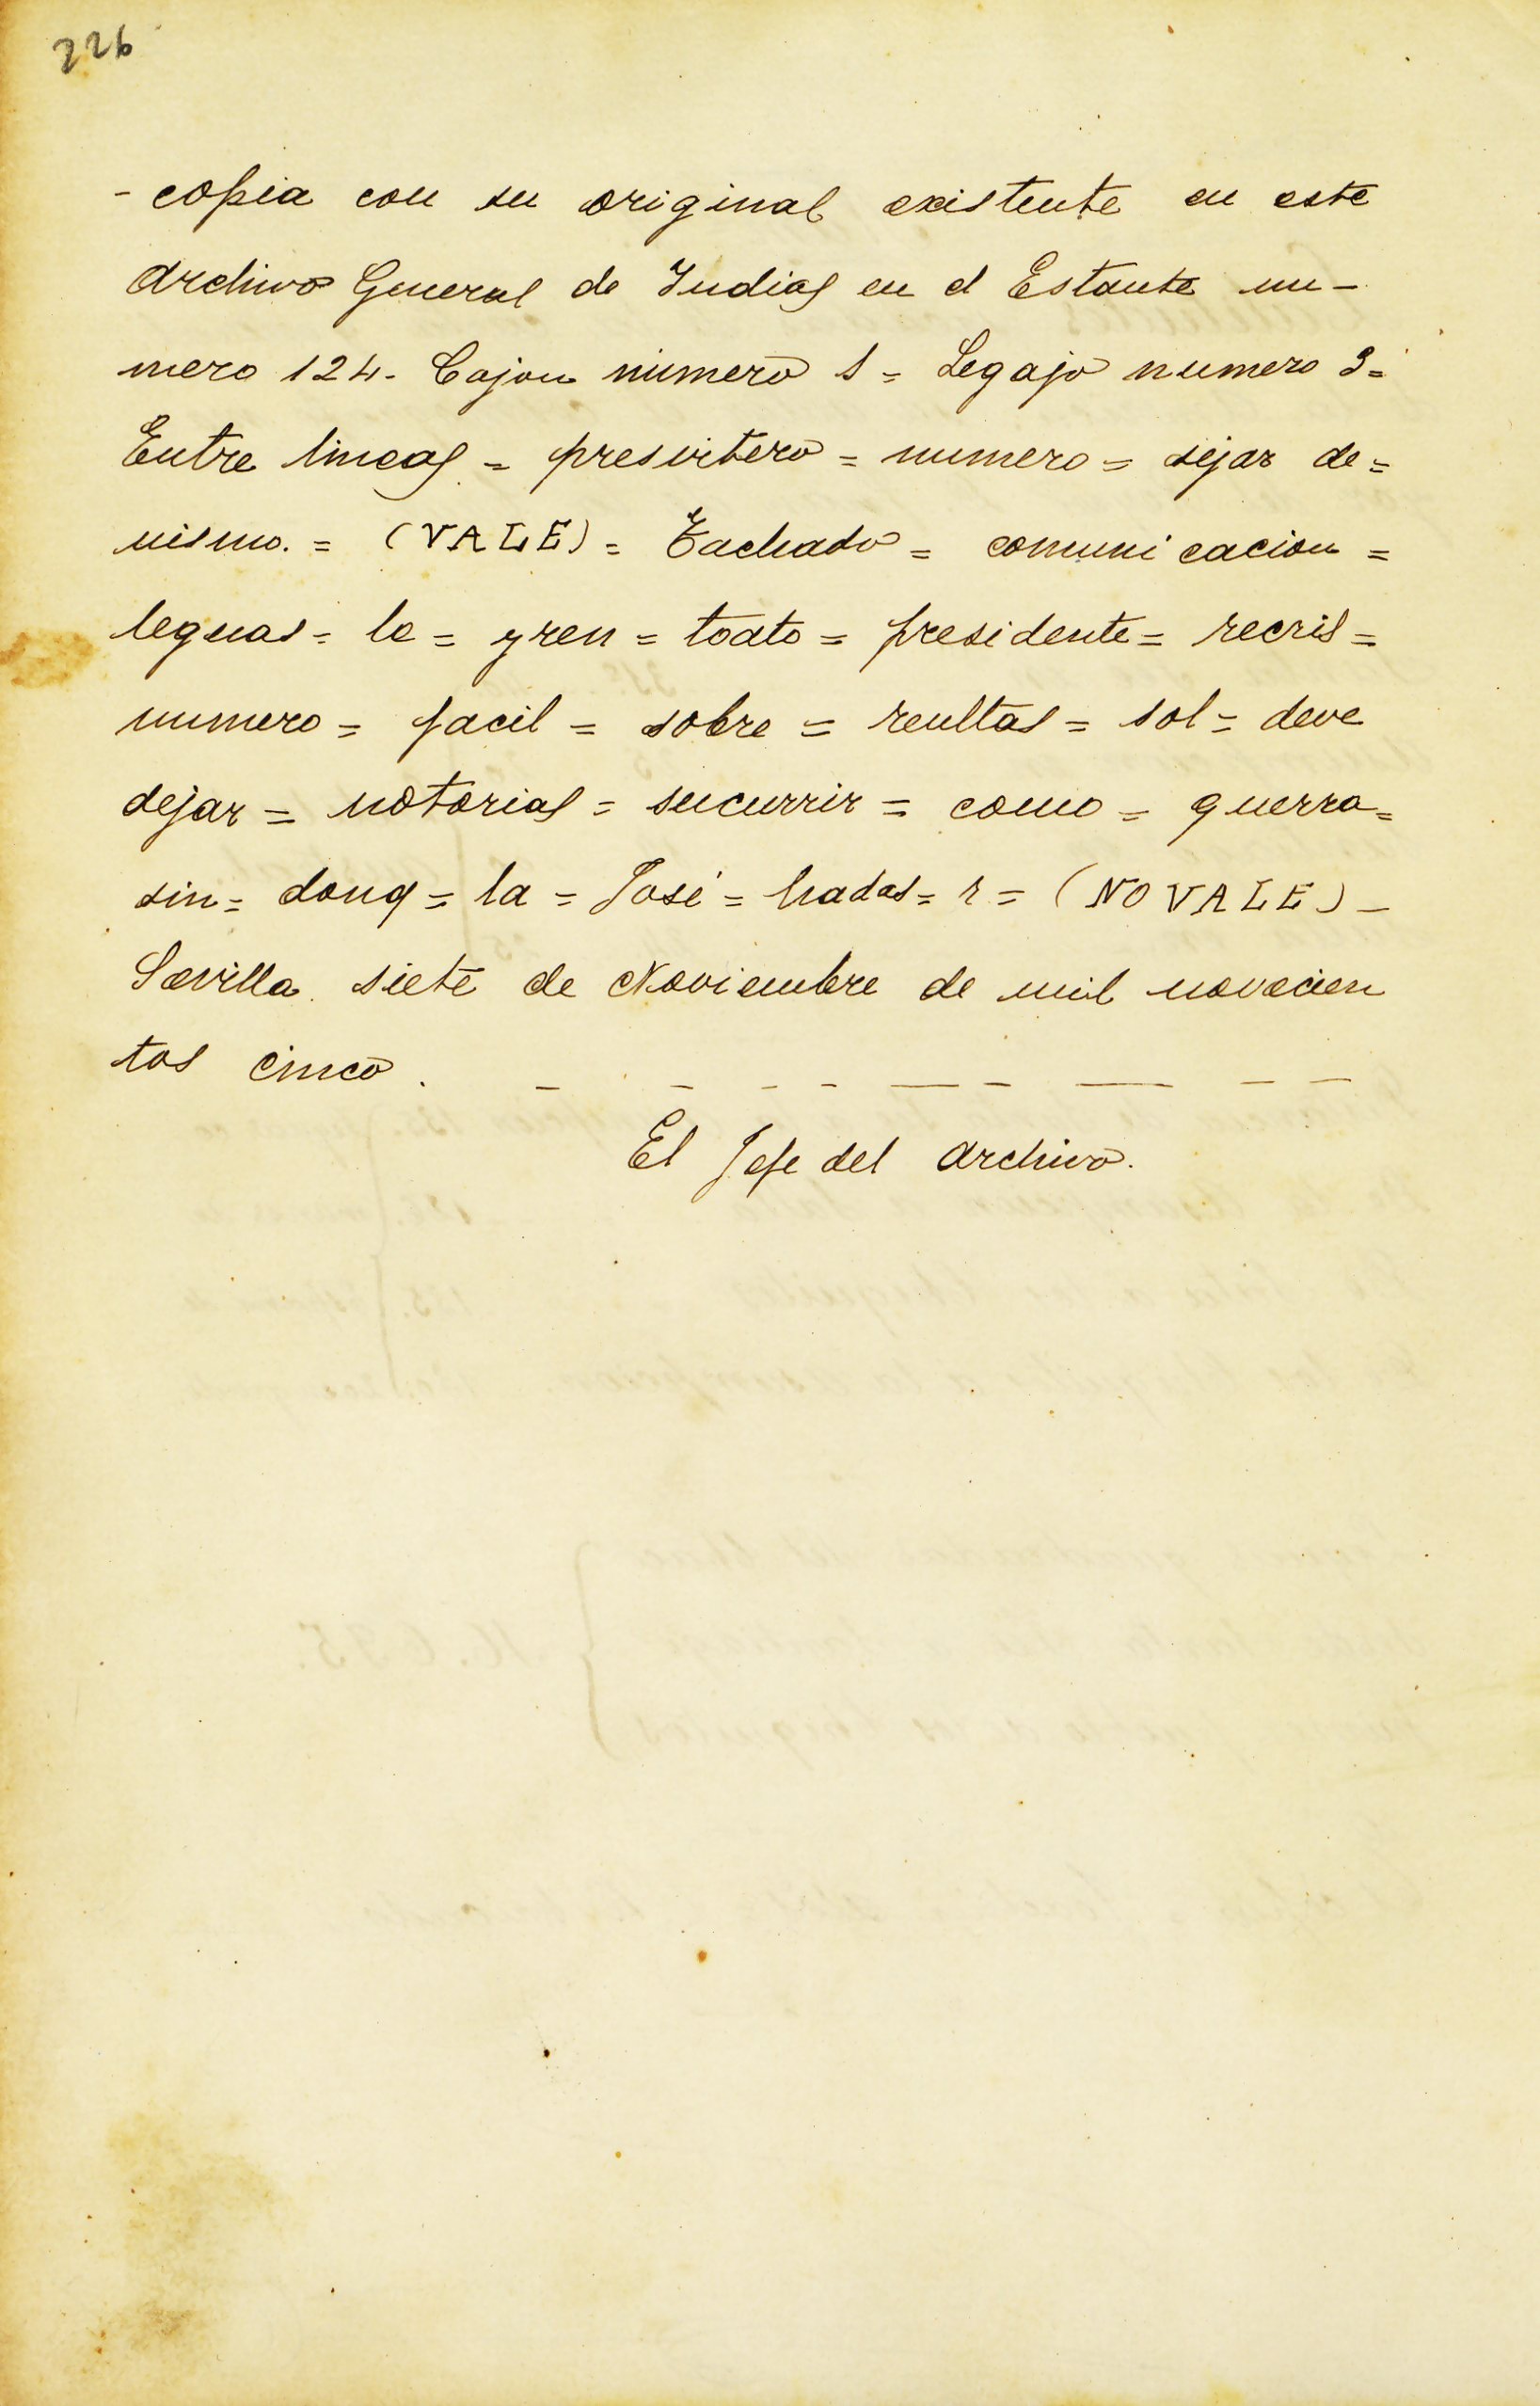 226
- copia con su original existente en este
Archivo General de Indias en el Estante nu-
mero 124- Cajon numero 1 = Legajo numero 3=
Entre lineas = presvitero = numero = dejar de =
nismo. = (VALE) = Tachado = comunicacion =
leguas = le = yren = toato = presidente = recris =
numero = facil = sobre = reultas = sol = deve
dejar = notorias = sucurrir = como = guerra=
sin = donq = la = José = hadas = r = (NO VALE) -
Sevilla siete de Noviembre de mil novecien
tos cinco. - - - - - - - - -
El Jefe del Archivo.